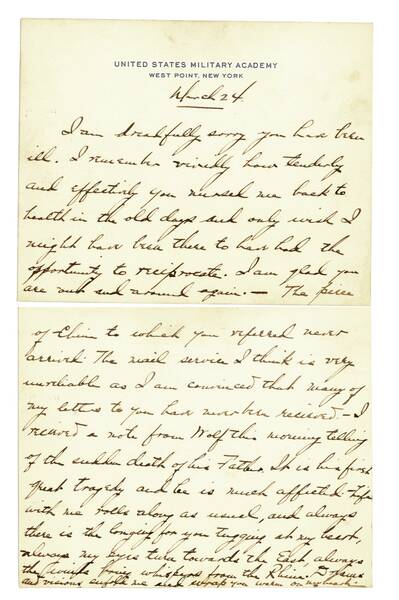 UNITED STATES MILITARY ACADEMY
WEST POINT, NEW YORK
March 24
I am dreadfully sorry you have been
ill. I remember vividly how tenderly
and effectively you nursed me back to
health in the old days and only wish I
might have been there to have had the
opportunity to reciprocate. I am glad you
are out and around again. — The piece
of China to which you referred never
arrived. The mail service I think is very
unreliable as I am convinced that many of
my letters to you have never been received — I
received a note from Wolf this morning telling
of the sudden death of his Father. It is his first
great tragedy and he is much affected. Life
with me rolls along as usual, and always
there is the longing for you tugging at my heart,
always my eyes turn towards the East, always
the winds bring whispers from the Rhine. Dreams
and visions enfold me and wrap you warm on my